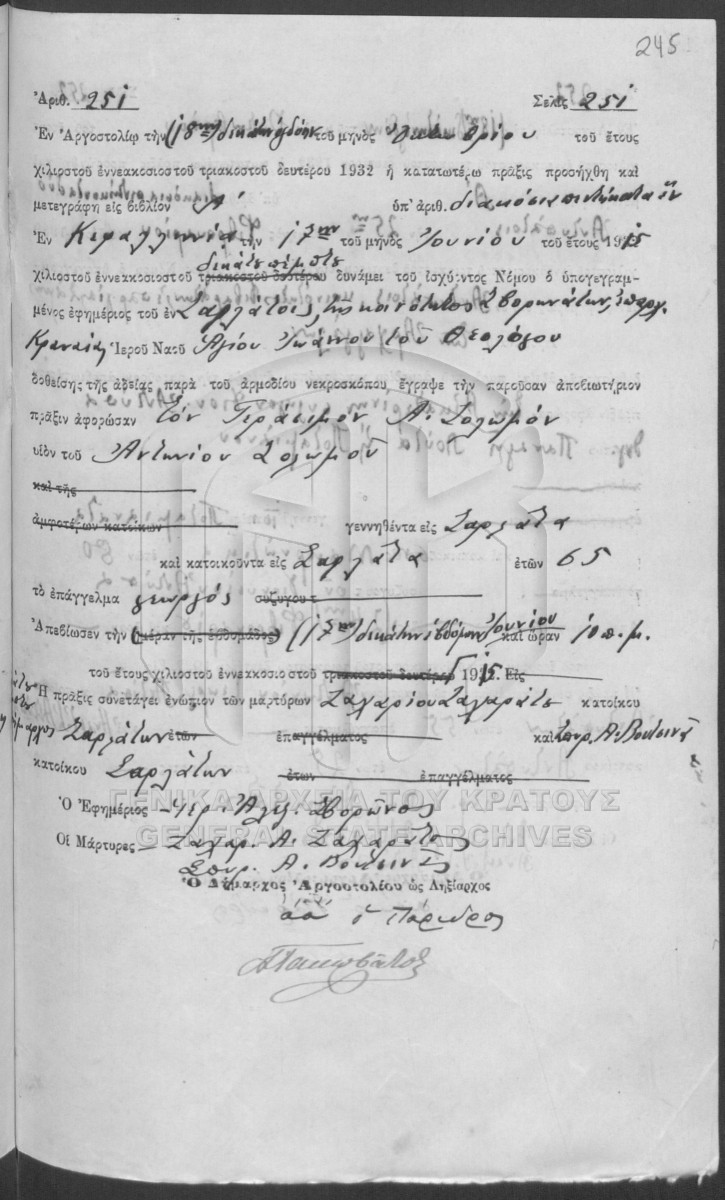 245
Ἀριθ. 251 Σελὶς 251
Ἐν Ἀργοστολίῳ τὴν (18ην) δεκάτην ὀγδόην τοῦ μηνὸς Ὀκτωβρίου τοῦ ἔτους
χιλιοστοῦ ἐννεακοσιοστοῦ τριακοστοῦ δευτέρου 1932 ἡ κατωτέρω πρᾶξις προσήχθη καὶ
μετεγράφη εἰς βιβλίον ὑπ' ἀριθ. διακόσια πεντήκοντα ἓν
Ἐν Κεφαλληνίᾳ τὴν 17ην τοῦ μηνὸς Ἰουνίου τοῦ ἔτους 1915
δεκάτου πέμπτου
χιλιοστοῦ ἐννεακοσιοστοῦ τριακοστοῦ δευτέρου δυνάμει τοῦ ἰσχύοντος Νόμου ὁ ὑπογεγραμ-
μένος ἐφημέριος τοῦ ἐν Σαρλάτοις, τῆς κοινότητος Σβορωνάτων, ἐπαρχ.
Κραναίας Ἱεροῦ Ναοῦ Ἁγίου Ἰωάννου τοῦ Θεολόγου
δοθείσης τῆς ἀδείας παρὰ τοῦ ἁρμοδίου νεκροσκόπου ἔγραψε τὴν παροῦσαν ἀποβιωτήριον
πρᾶξιν ἀφορῶσαν τὸν Γεράσιμον Α. Σολωμόν
υἱὸν τοῦ Ἀντωνίου Σολωμοῦ
καὶ τῆς
ἀμφοτέρων κατοίκων γεννηθέντα εἰς Σαρλάτα
καὶ κατοικοῦντα εἰς Σαρλάτα ἐτῶν 65
τὸ ἐπάγγελμα γεωργός συζύγου τ
Ἀπεβίωσεν τὴν (ἡμέραν τῆς ἑβδομάδος) (17ην) δεκάτην ἑβδόμην Ἰουνίου καὶ ὥραν 10 π.μ.
τοῦ ἔτους χιλιοστοῦ ἐννεακοσιοστοῦ τριακοστοῦ δευτέρου 1932. 15 Εἰς
Ἡ πρᾶξις συνετάγει ἐνώπιον τῶν μαρτύρων Ζαχαρίου Ζαχαράτου κατοίκου
Σαρλάτων ἐτῶν ἐπαγγέλματος καὶ Σπυρ. Α. Βουτσινᾶ
κατοίκου Σαρλάτων ἐτῶν ἐπαγγέλματος
Ὁ Ἐφημέριος - Ἱερ. Ἀλεξ. Σβορῶνος
Οἱ Μάρτυρες - Ζαχαρ. Α. Ζαχαρᾶτος
Σπυρ. Α. Βουτσινᾶς
Ὁ Δήμαρχος Ἀργοστολίου ὡς Ληξίαρχος
ὁ Πάρεδρος
ΓΕΝΙΚΑ ΑΡΧΕΙΑ ΤΟΥ ΚΡΑΤΟΥΣ
GENERAL STATE ARCHIVES